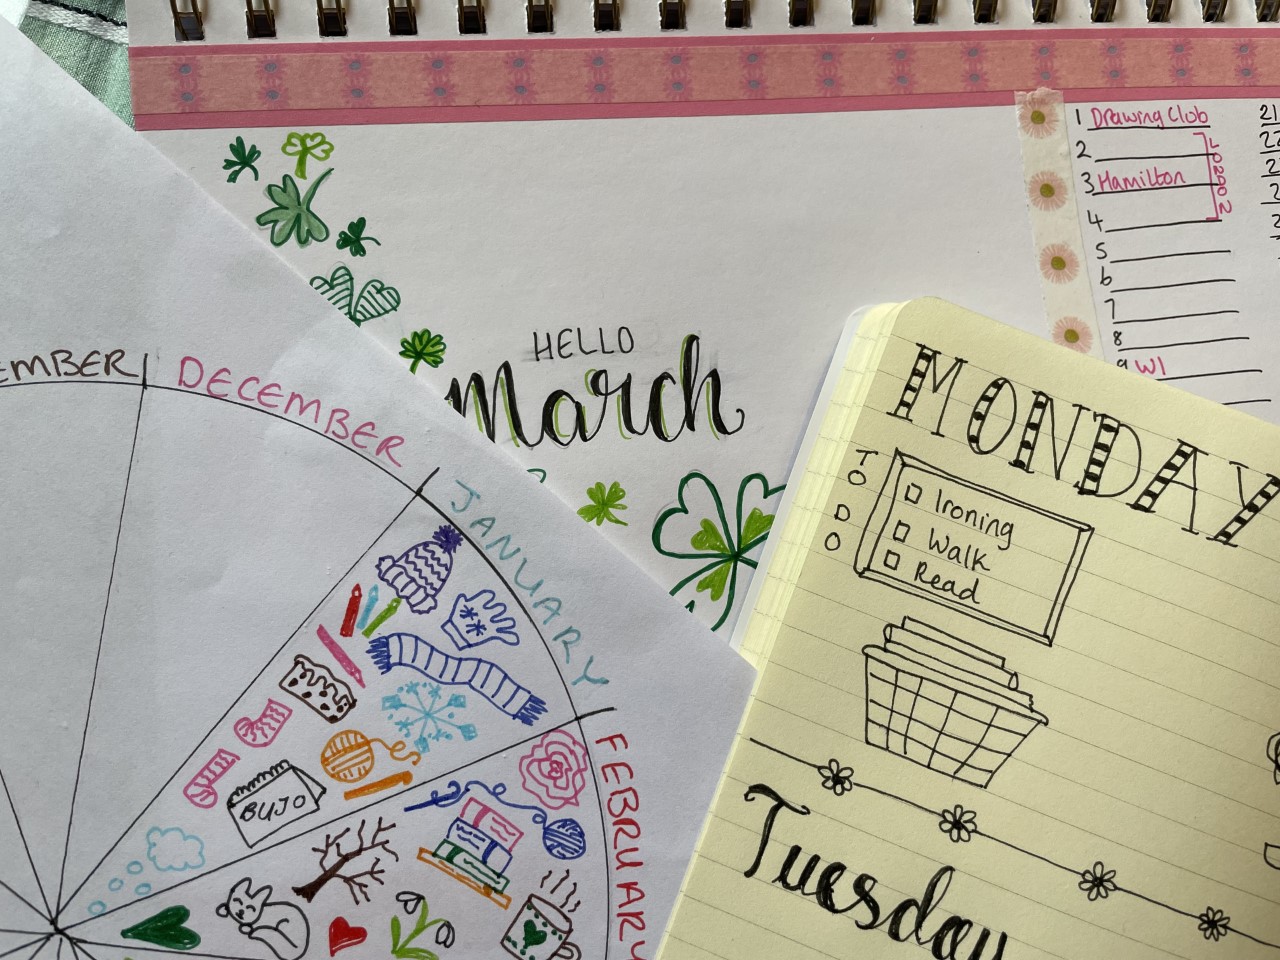 1 Drawing Club
2
3 Hamilton
4
5
6
7
8
9 WI
21
22
HELLO
March
EMBER
DECEMBER
JANUARY
FEBRUARY
BUJO
MONDAY
TO DO
Ironing
Walk
Read
Tuesday